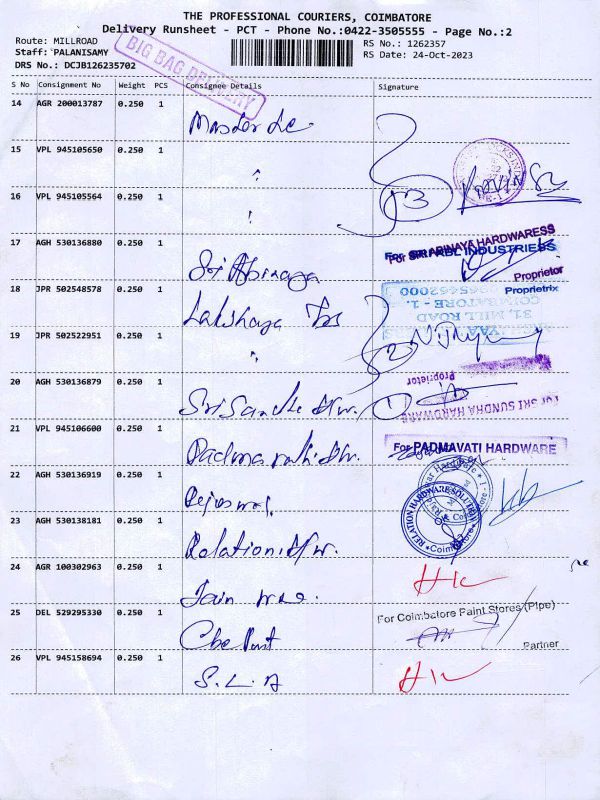 THE PROFESSIONAL COURIERS, COIMBATORE
Delivery Runsheet - PCT - Phone No.:0422-3505555 - Page No.:2
Route: MILLROAD
RS No.: 1262357
Staff: PALANISAMY
RS Date: 24-Oct-2023
DRS No.: DCJB126235702
BIG BAG DELIVERY
S No Consignment No Weight PCS Consignee Details Signature
14 AGR 200013787 0.250 1
15 VPL 945105650 0.250 1
16 VPL 945105564 0.250 1
3
17 AGH 530136880 0.250 1 Sri Abinaya
For SRI ABINAYA HARDWARESS
INDUSTRIESS
Proprietor
18 JPR 502548578 0.250 1 Lakshaya
Proprietrix
COIMBATORE - 1.
31, MILL ROAD
19 JPR 502522951 0.250 1
2
Proprietor
20 AGH 530136879 0.250 1
1
For SRI SUNDHA HARDWARE
21 VPL 945106600 0.250 1
For PADMAVATI HARDWARE
22 AGH 530136919 0.250 1
23 AGH 530138181 0.250 1 Relation H/w.
RELATION HARDWARE SOLUTION
Coimbatore
24 AGR 100302963 0.250 1 Jain
25 DEL 529295330 0.250 1
For Coimbatore Paint Stores (Pipe)
Partner
26 VPL 945158694 0.250 1 S.L.A